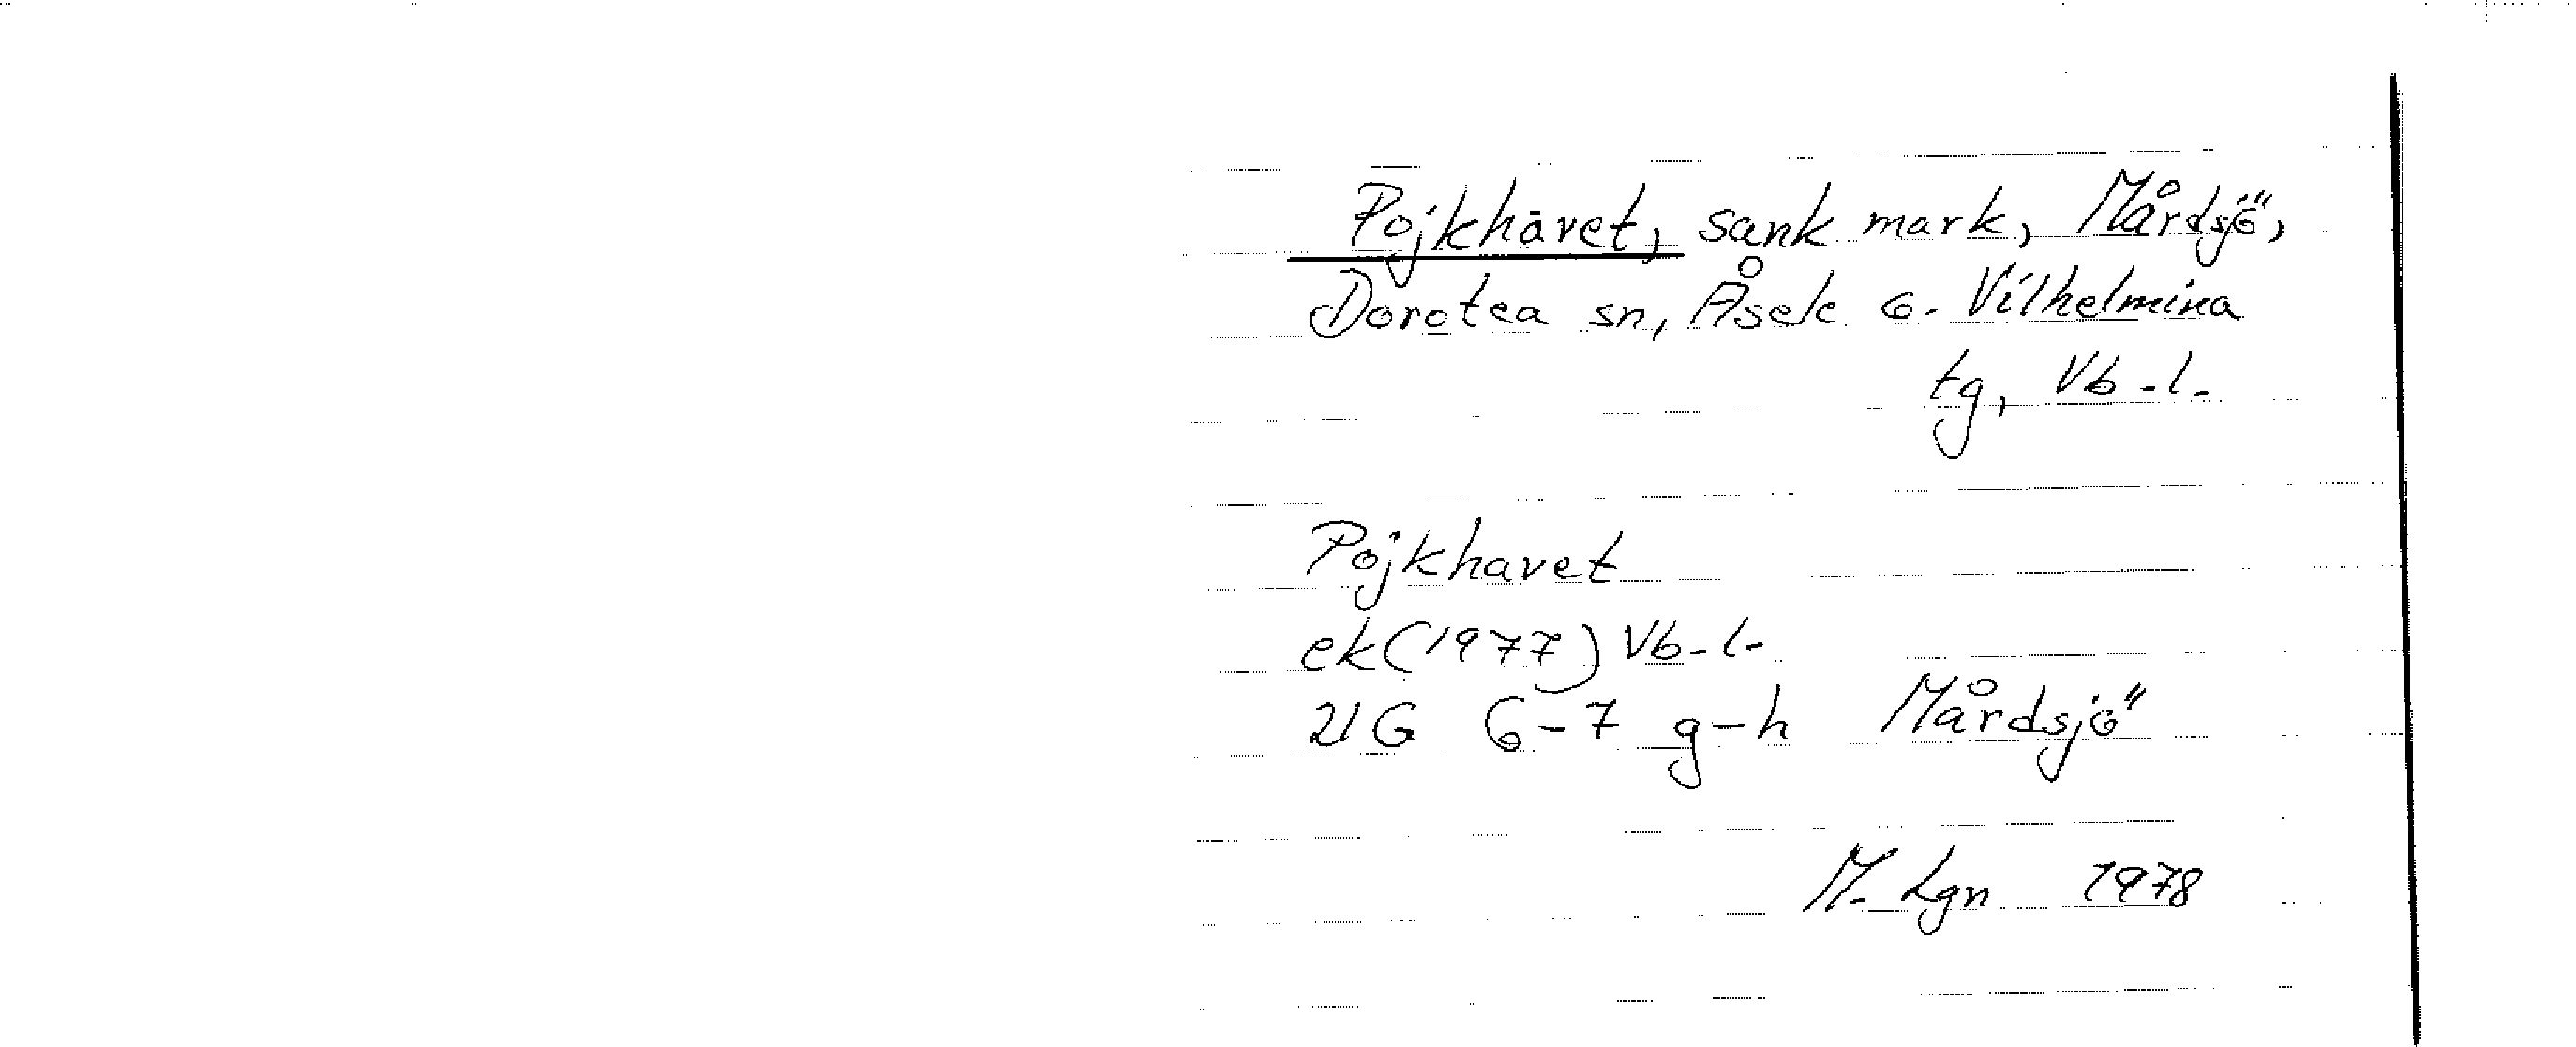 Pojkhavet, sank mark, Mårdsjö,
Dorotea sn, Åsele o. Vilhelmina
tg, Vb-l.
Pojkhavet
ek (1977) Vb-l.
21G 6-7 g-h Mårdsjö
M. Lgn 1978